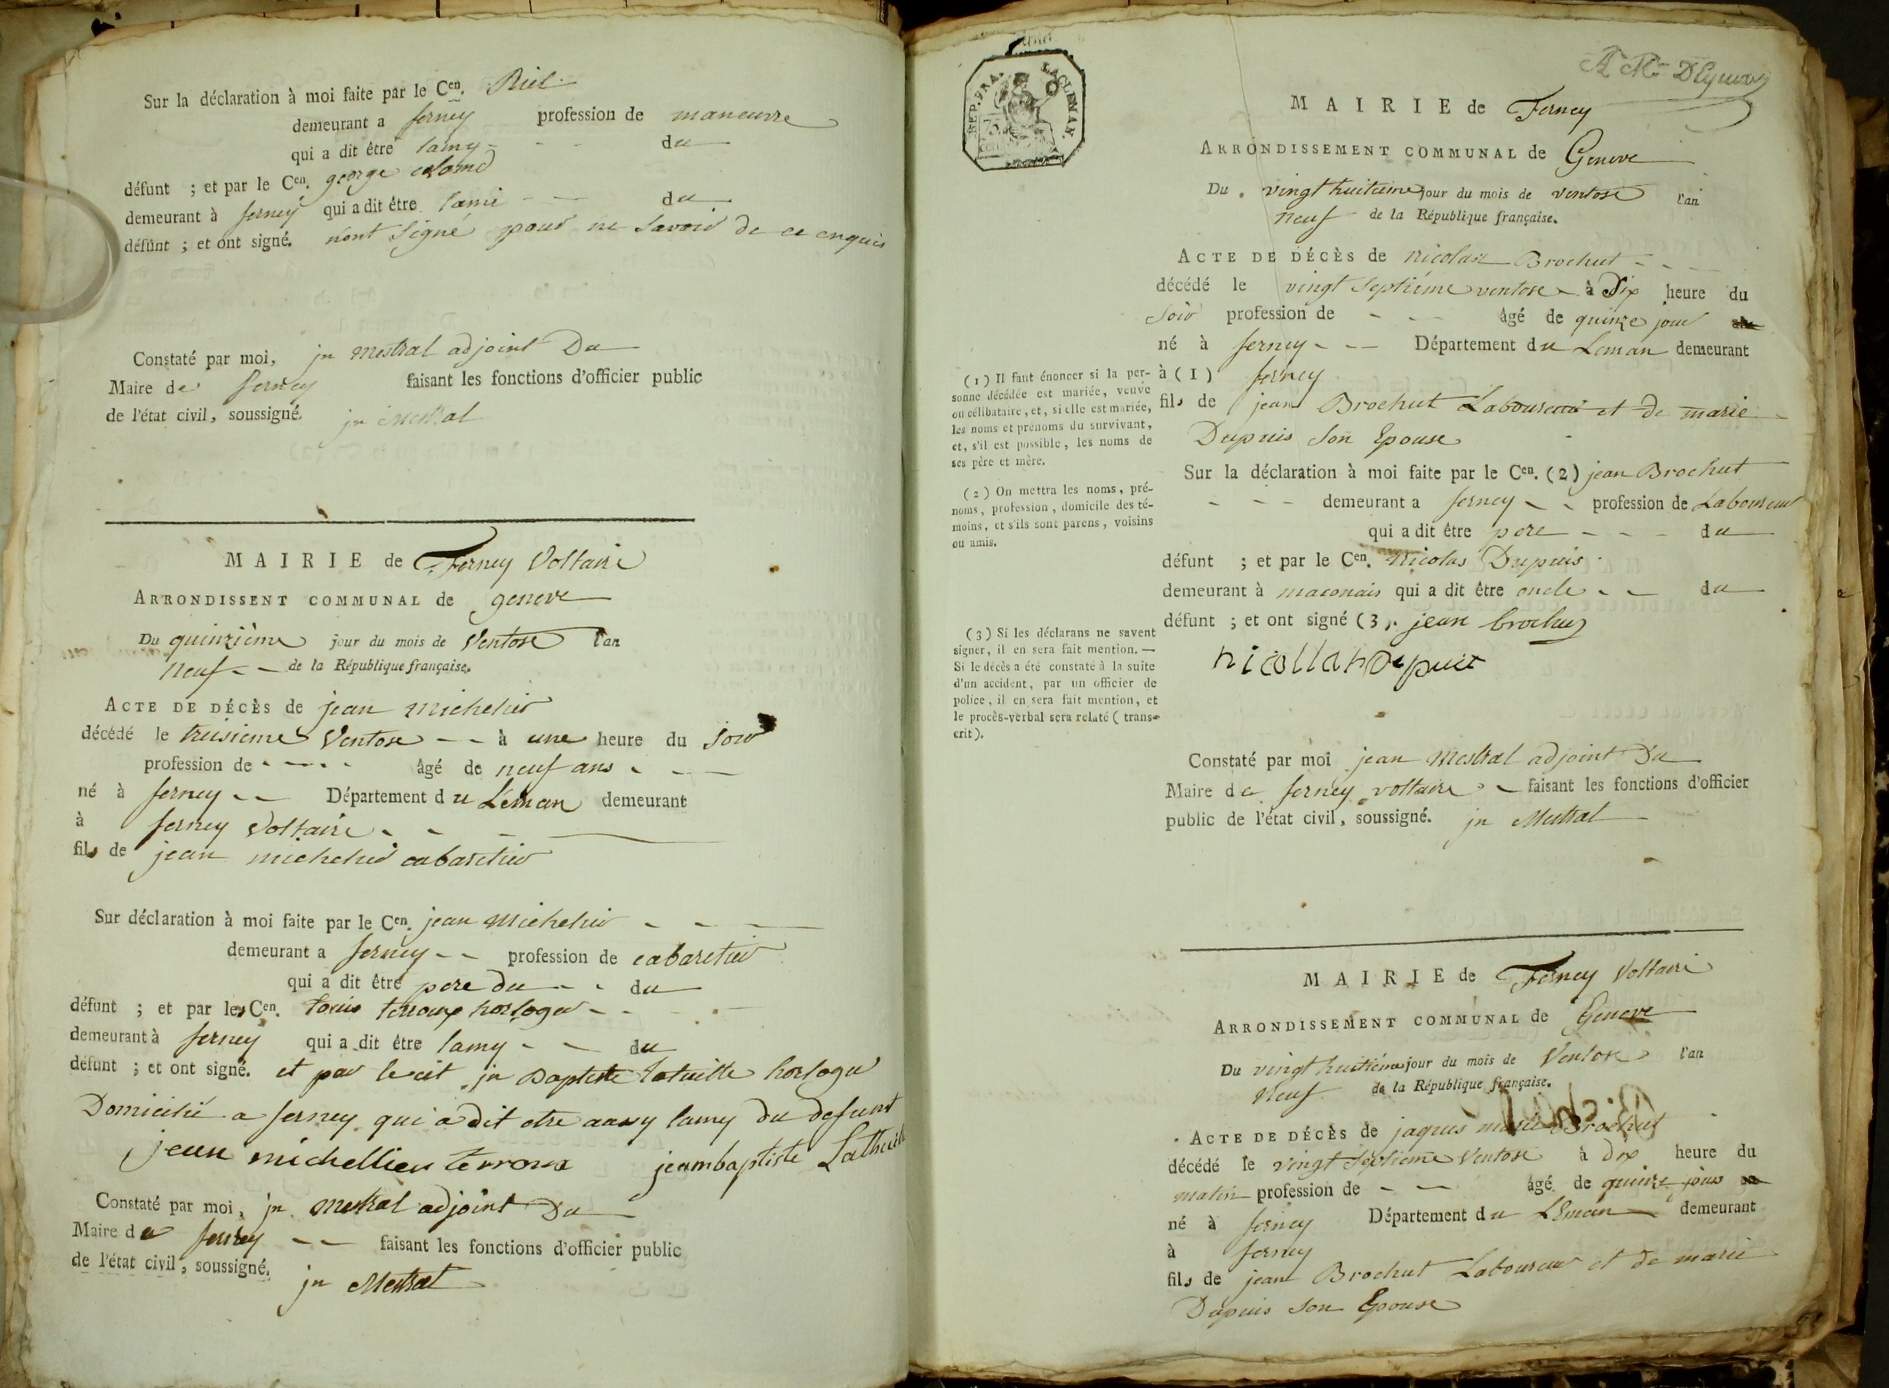 Sur la déclaration à moi faite par le Cen. Riel
demeurant a ferney profession de maneuvre
qui a dit être lamy - - - du
défunt ; et par le Cen. george
demeurant à ferney qui a dit être lami - - du
défunt ; et ont signé. n'ont signé pour ne savoir de ce enquis
Constaté par moi, jn mestral adjoint Du
Maire de ferney faisant les fonctions d'officier public
de l'état civil, soussigné. jn Mestral
MAIRIE de Ferney Voltaire
ARRONDISSENT COMMUNAL de geneve
Du quinzième jour du mois de Ventose l'an
neuf - - de la République française.
ACTE DE DÉCÈS de jean michelier
décédé le treisieme Ventose - - à une heure du soir
profession de - - - - âgé de neuf ans - - -
né à ferney - - Département du Léman demeurant
à ferney Voltaire - - -
fils de jean michelier cabaretier
Sur déclaration à moi faite par le Cen. jean Michelier - - -
demeurant a ferney - - profession de cabaretier
qui a dit être pere du - - du
défunt ; et par les Cen. louis terroux horloger - - -
demeurant à ferney qui a dit être lamy - - du
défunt ; et ont signé. et par le cit jn Baptiste latuille horloger
Domicilié a ferney qui a dit etre aussy lamy du defunt
jean michellieu terroux jeambaptiste Lathuille
Constaté par moi, jn mestral adjoint Du
Maire de ferney - - faisant les fonctions d'officier public
de l'état civil, soussigné. jn Mestral
REP. FRA. LA CLEMAN.
MAIRIE de Ferney
ARRONDISSEMENT COMMUNAL de Geneve
Du vingt huitieme jour du mois de ventose l'an
neuf de la République française.
ACTE DE DÉCÈS de nicolas Brochut - - -
décédé le vingt septiéme ventose à Dix heure du
Soir profession de - - - âgé de quinze jour
né à ferney - - - Département du Leman demeurant
à (1) ferney
fils de jean Brochut Laboureur et de marie
Dupuis son Epouse
Sur la déclaration à moi faite par le Cen. (2) jean Brochut
- - - demeurant a ferney - - profession de Laboureur
qui a dit être pere - - - du
défunt ; et par le Cen. Nicolas Dupuis
demeurant à maconais qui a dit être oncle - - du
défunt ; et ont signé (3). jean brochuz
nicollah Depuit
Constaté par moi jean Mestral adjoint Du
Maire de ferney voltaire - faisant les fonctions d'officier
public de l'état civil, soussigné. jn Mestral
(1) Il faut énoncer si la per-
sonne décédée est mariée, veuve
ou célibataire, et, si elle est mariée,
les noms et prénoms du survivant,
et, s'il est possible, les noms de
ses père et mère.
(2) On mettra les noms, pré-
noms, profession, domicile des té-
moins, et s'ils sont parens, voisins
ou amis.
(3) Si les déclarans ne savent
signer, il en sera fait mention. —
Si le décès a été constaté à la suite
d'un accident, par un officier de
police, il en sera fait mention, et
le procès-verbal sera relaté (trans-
crit).
MAIRIE de Ferney Voltaire
ARRONDISSEMENT COMMUNAL de Geneve
Du vingt huitiéme jour du mois de Ventose l'an
Neuf de la République française.
ACTE DE DÉCÈS de jaques Brochut
décédé le vingt septieme Ventose à dix heure du
matin profession de - - âgé de quinze jours
né à ferney Département du Léman demeurant
à ferney
fils de jean Brochut Laboureur et de marie
Dupuis son Epouse